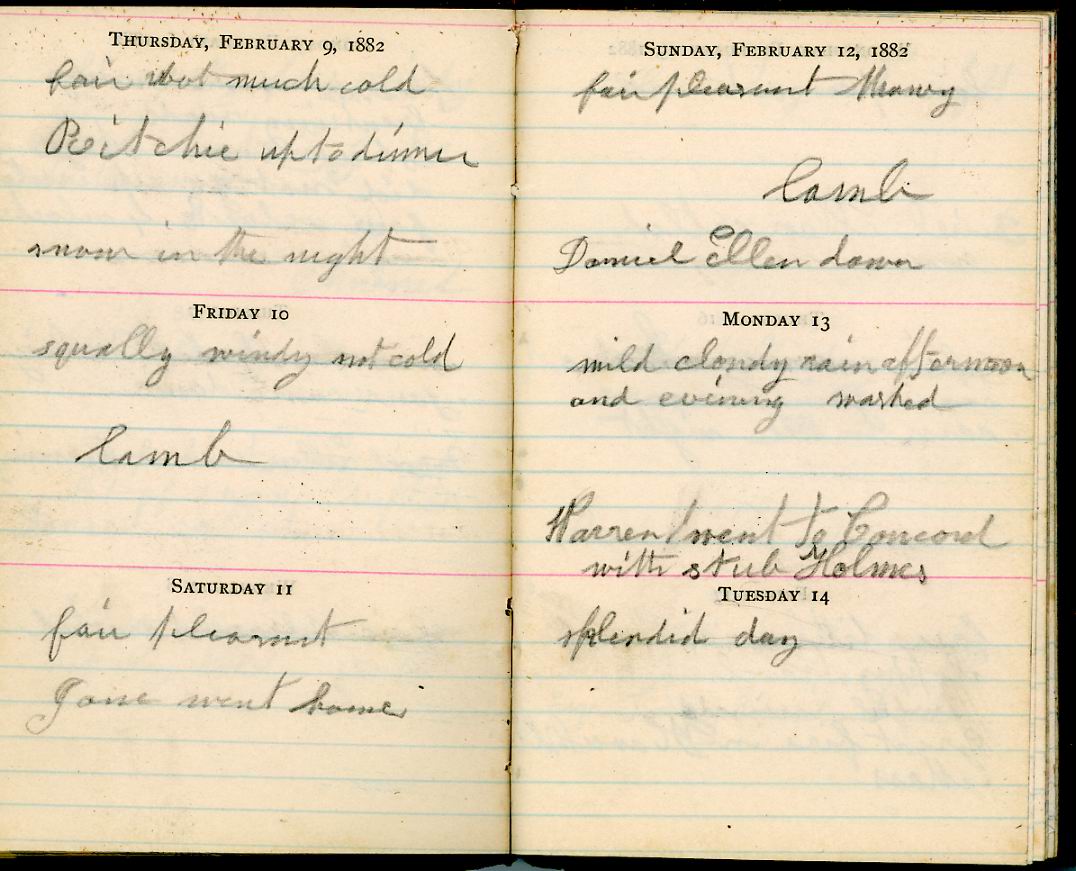 THURSDAY, FEBRUARY 9, 1882
fair not much cold
Ritchie up to dinner
snow in the night
FRIDAY 10
squally windy not cold
lamb
SATURDAY 11
fair pleasant
Jane went home
SUNDAY, FEBRUARY 12, 1882
fair pleasant
lamb
Daniel Ellen down
MONDAY 13
mild cloudy rain afternoon
and evening washed
Warren went to Concord
with stub Holmes
TUESDAY 14
splendid day